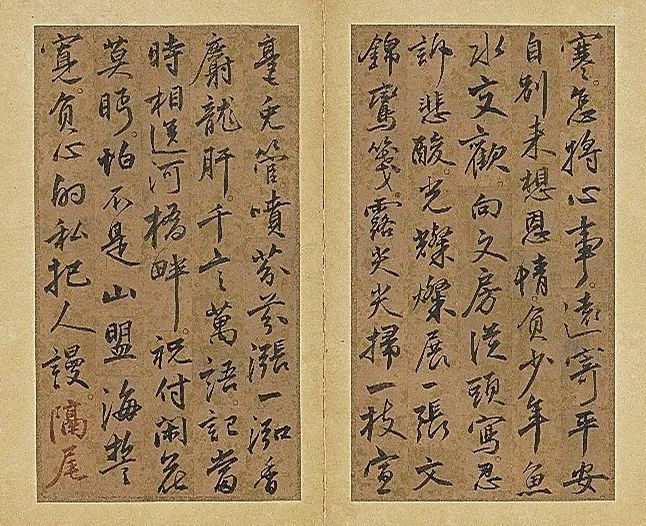 寒。怎將心事。遠寄平安
自別来想恩情。負少年魚
水交歡向文房。從頭寫忍
訴悲酸光燦燦展一張文
錦鸞箋。露尖尖掃一枝宣
毫兔管噴芬芬漲一泓香
麝龍肝。千言萬語。記當
時相送河橋畔。祝付閑花
莫眄。怕不是山盟海誓
寬。負心的私把人謾
隔尾